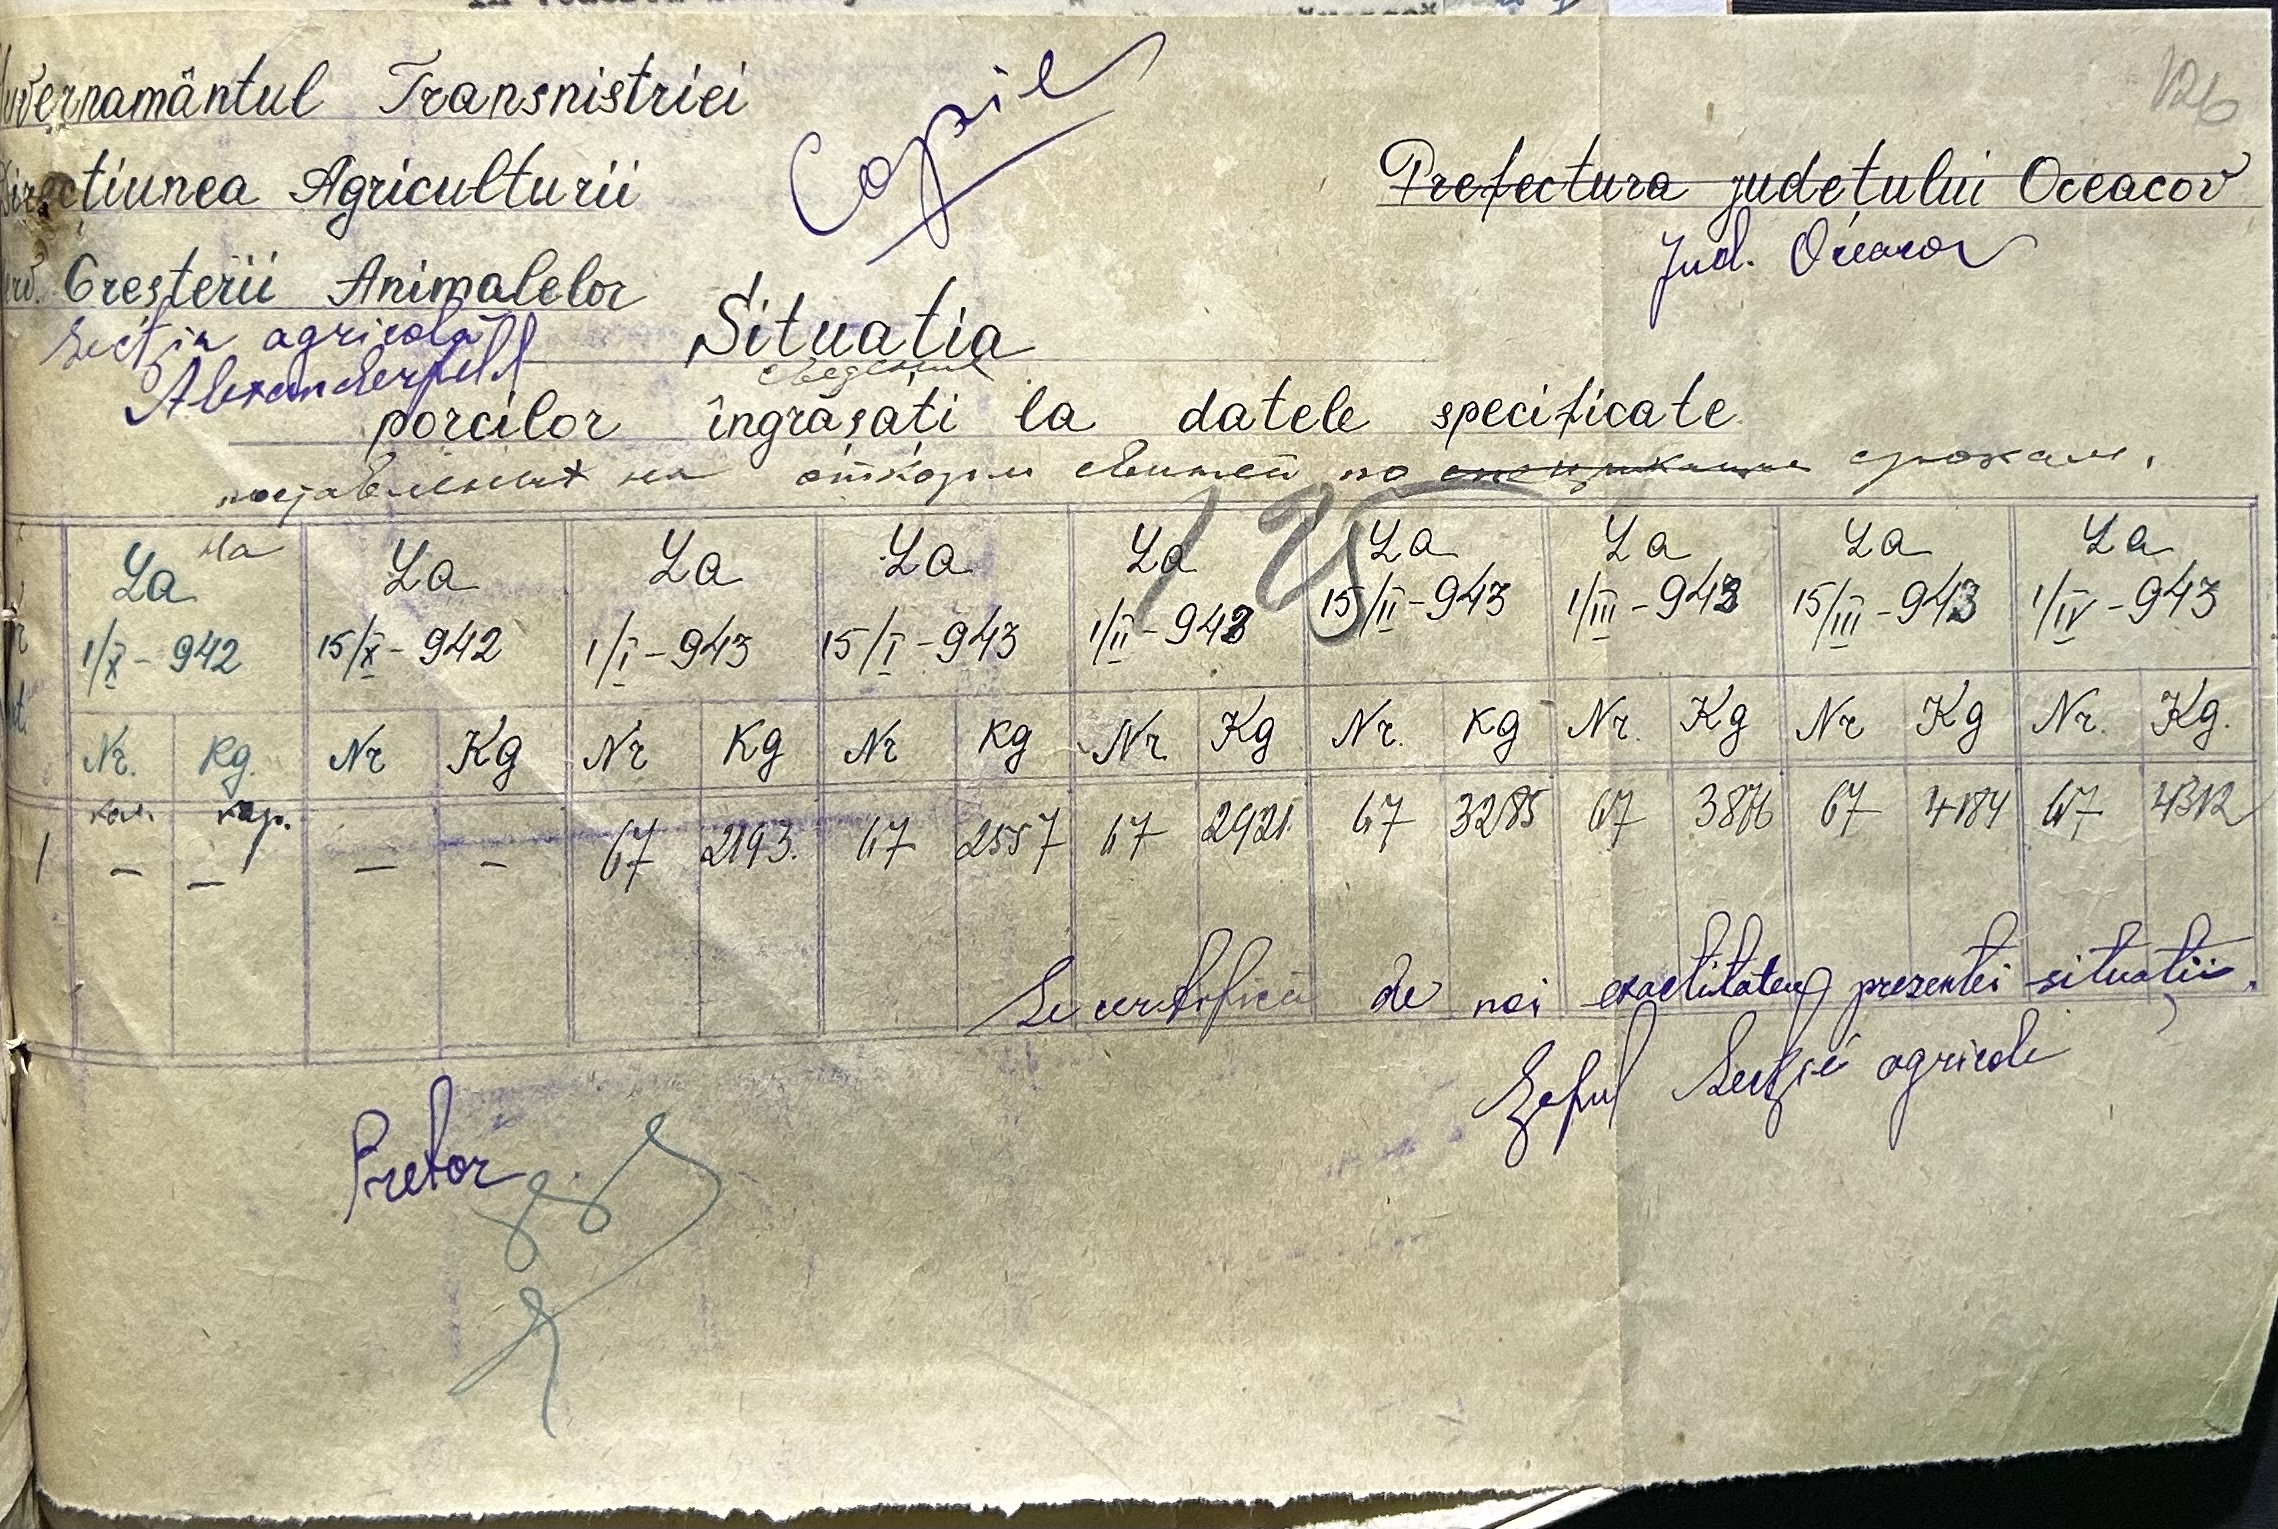 Guvernamântul Transnistriei
Copie
126
Direcțiunea Agriculturii
Prefectura județului Oceacov
Jud. Oceacov
Serv. Creșterii Animalelor
Secția agricolă
Alexanderfeld
Situatia
сведения
porcilor îngrășați la datele specificate
поставленных на откорм свиней по срокам.
125
La на La La La La La La La La
1/X-942 15/X-942 1/I-943 15/I-943 1/II-943 15/II-943 1/III-943 15/III-943 1/IV-943
Nr. Kg. Nr Kg Nr Kg Nr Kg Nr Kg Nr. Kg Nr. Kg Nr Kg Nr. Kg.
кол. кгр.
1 – – – – 67 2193. 67 2557 67 2921. 67 3285 67 3876 67 4184 67 4312
Se certifică de noi exactitatea prezentei situații.
Șeful Secției agricole
Pretor